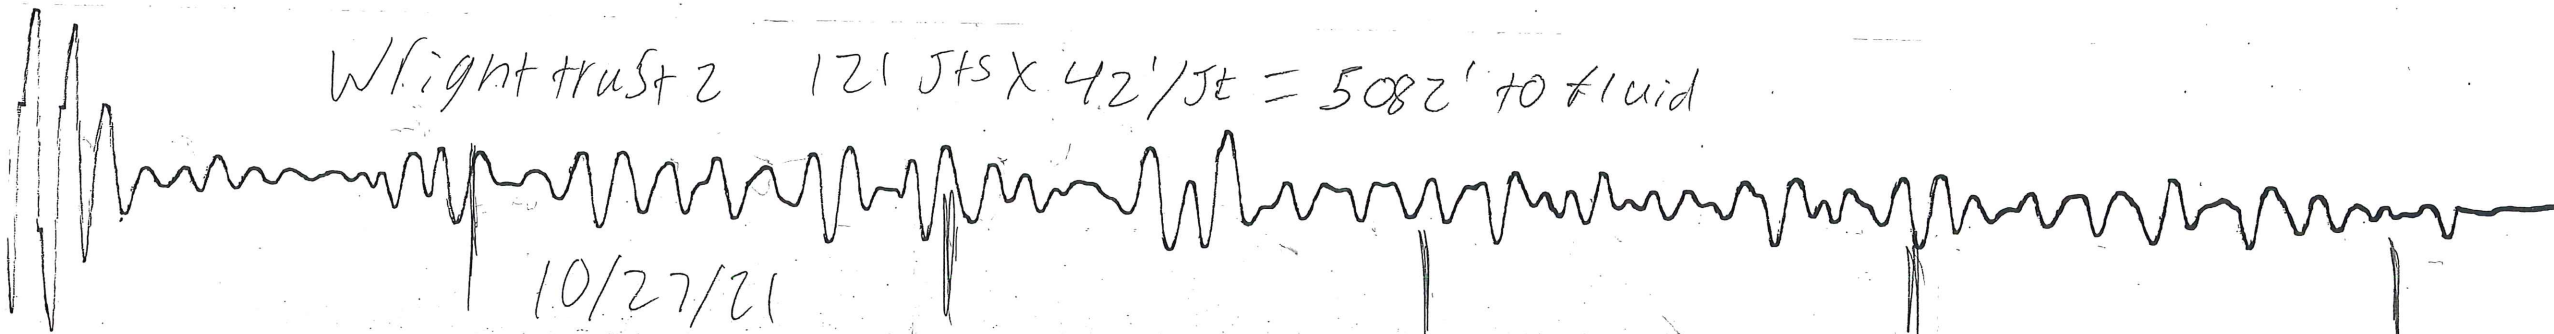 Wright trust 2 121 Jts X 42'/Jt = 5082' to fluid
10/27/21